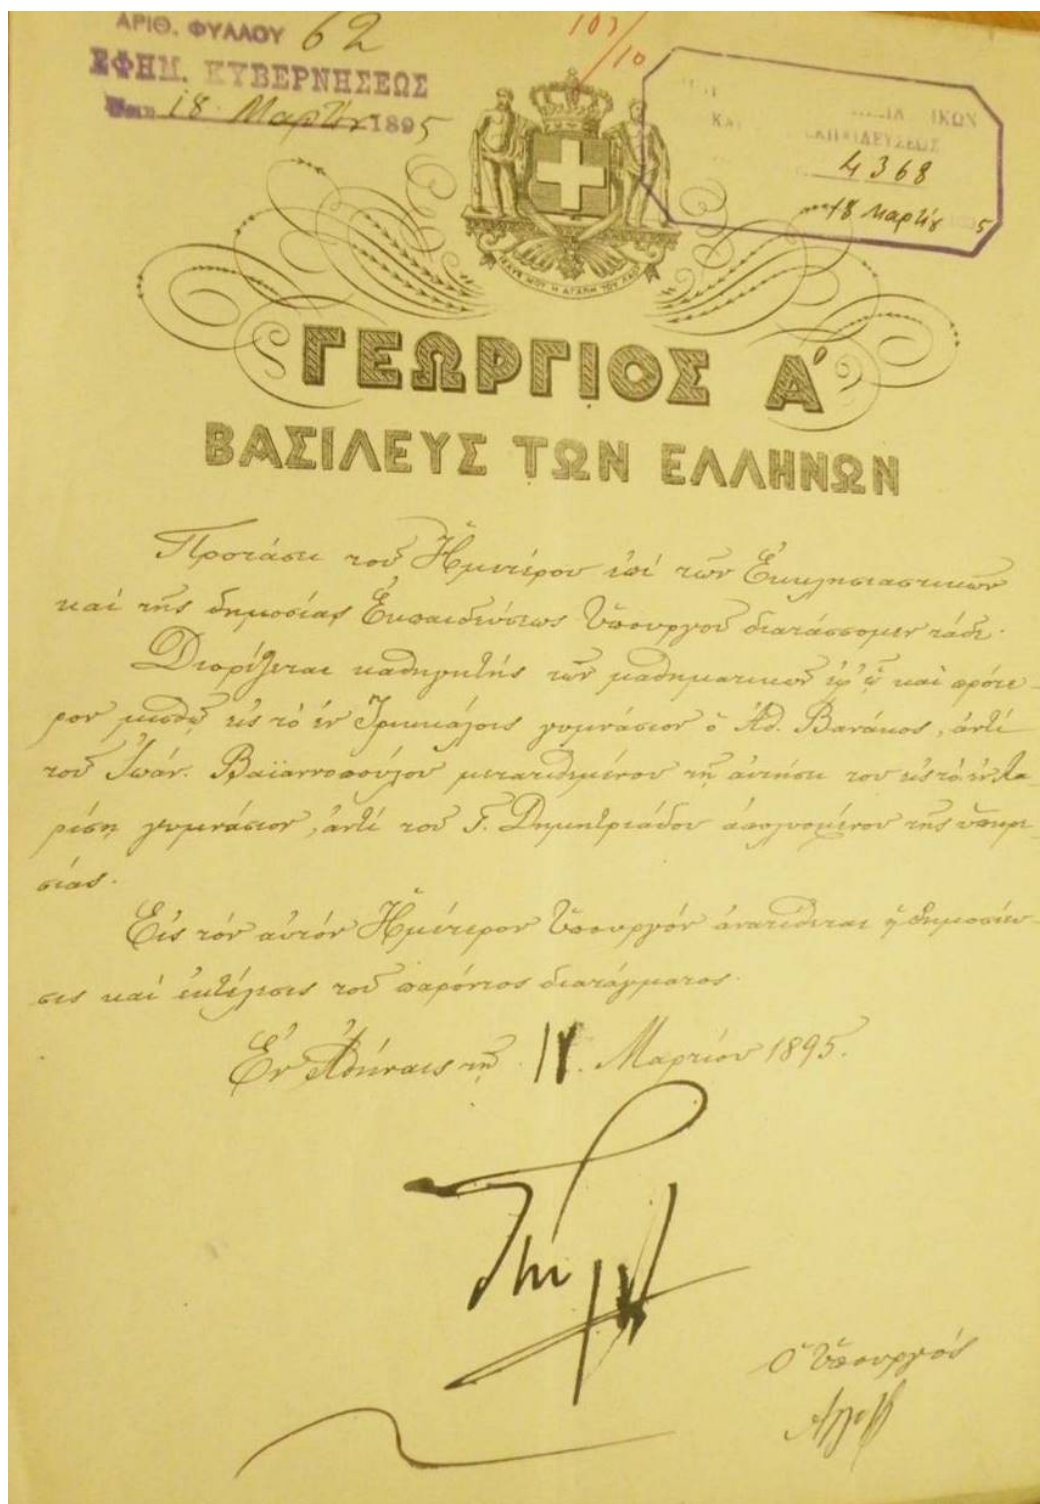 ΑΡΙΘ. ΦΥΛΛΟΥ 62
ΕΦΗΜ. ΚΥΒΕΡΝΗΣΕΩΣ
18 Μαρτίου 1895
107/10
4368
18 Μαρτίου 5
ΙΣΧΥΣ ΜΟΥ Η ΑΓΑΠΗ ΤΟΥ ΛΑΟΥ
ΓΕΩΡΓΙΟΣ Α΄
ΒΑΣΙΛΕΥΣ ΤΩΝ ΕΛΛΗΝΩΝ
Προτάσει τοῦ Ἡμετέρου ἐπί τῶν Ἐκκλησιαστικῶν
καί τῆς δημοσίας Ἐκπαιδεύσεως Ὑπουργοῦ διατάσσομεν τάδε.
Διορίζεται καθηγητής τῶν μαθηματικῶν ἐφ' ᾧ καί πρότε-
ρον μισθῷ εἰς τό ἐν Τρικκάλοις γυμνάσιον ὁ Ἀθ. Βανάκος, ἀντί
τοῦ Ἰωάν. Βαϊαννοπούλου μετατιθεμένου τῇ αἰτήσει του εἰς τό ἐν Λα-
ρίσῃ γυμνάσιον, ἀντί τοῦ Γ. Δημητριάδου ἀπολυομένου τῆς ὑπηρε-
σίας.
Εἰς τόν αὐτόν Ἡμέτερον Ὑπουργόν ἀνατίθεται ἡ δημοσίευ-
σις καί ἐκτέλεσις τοῦ παρόντος διατάγματος.
Ἐν Ἀθήναις τῇ 11 Μαρτίου 1895.
Ὁ Ὑπουργός